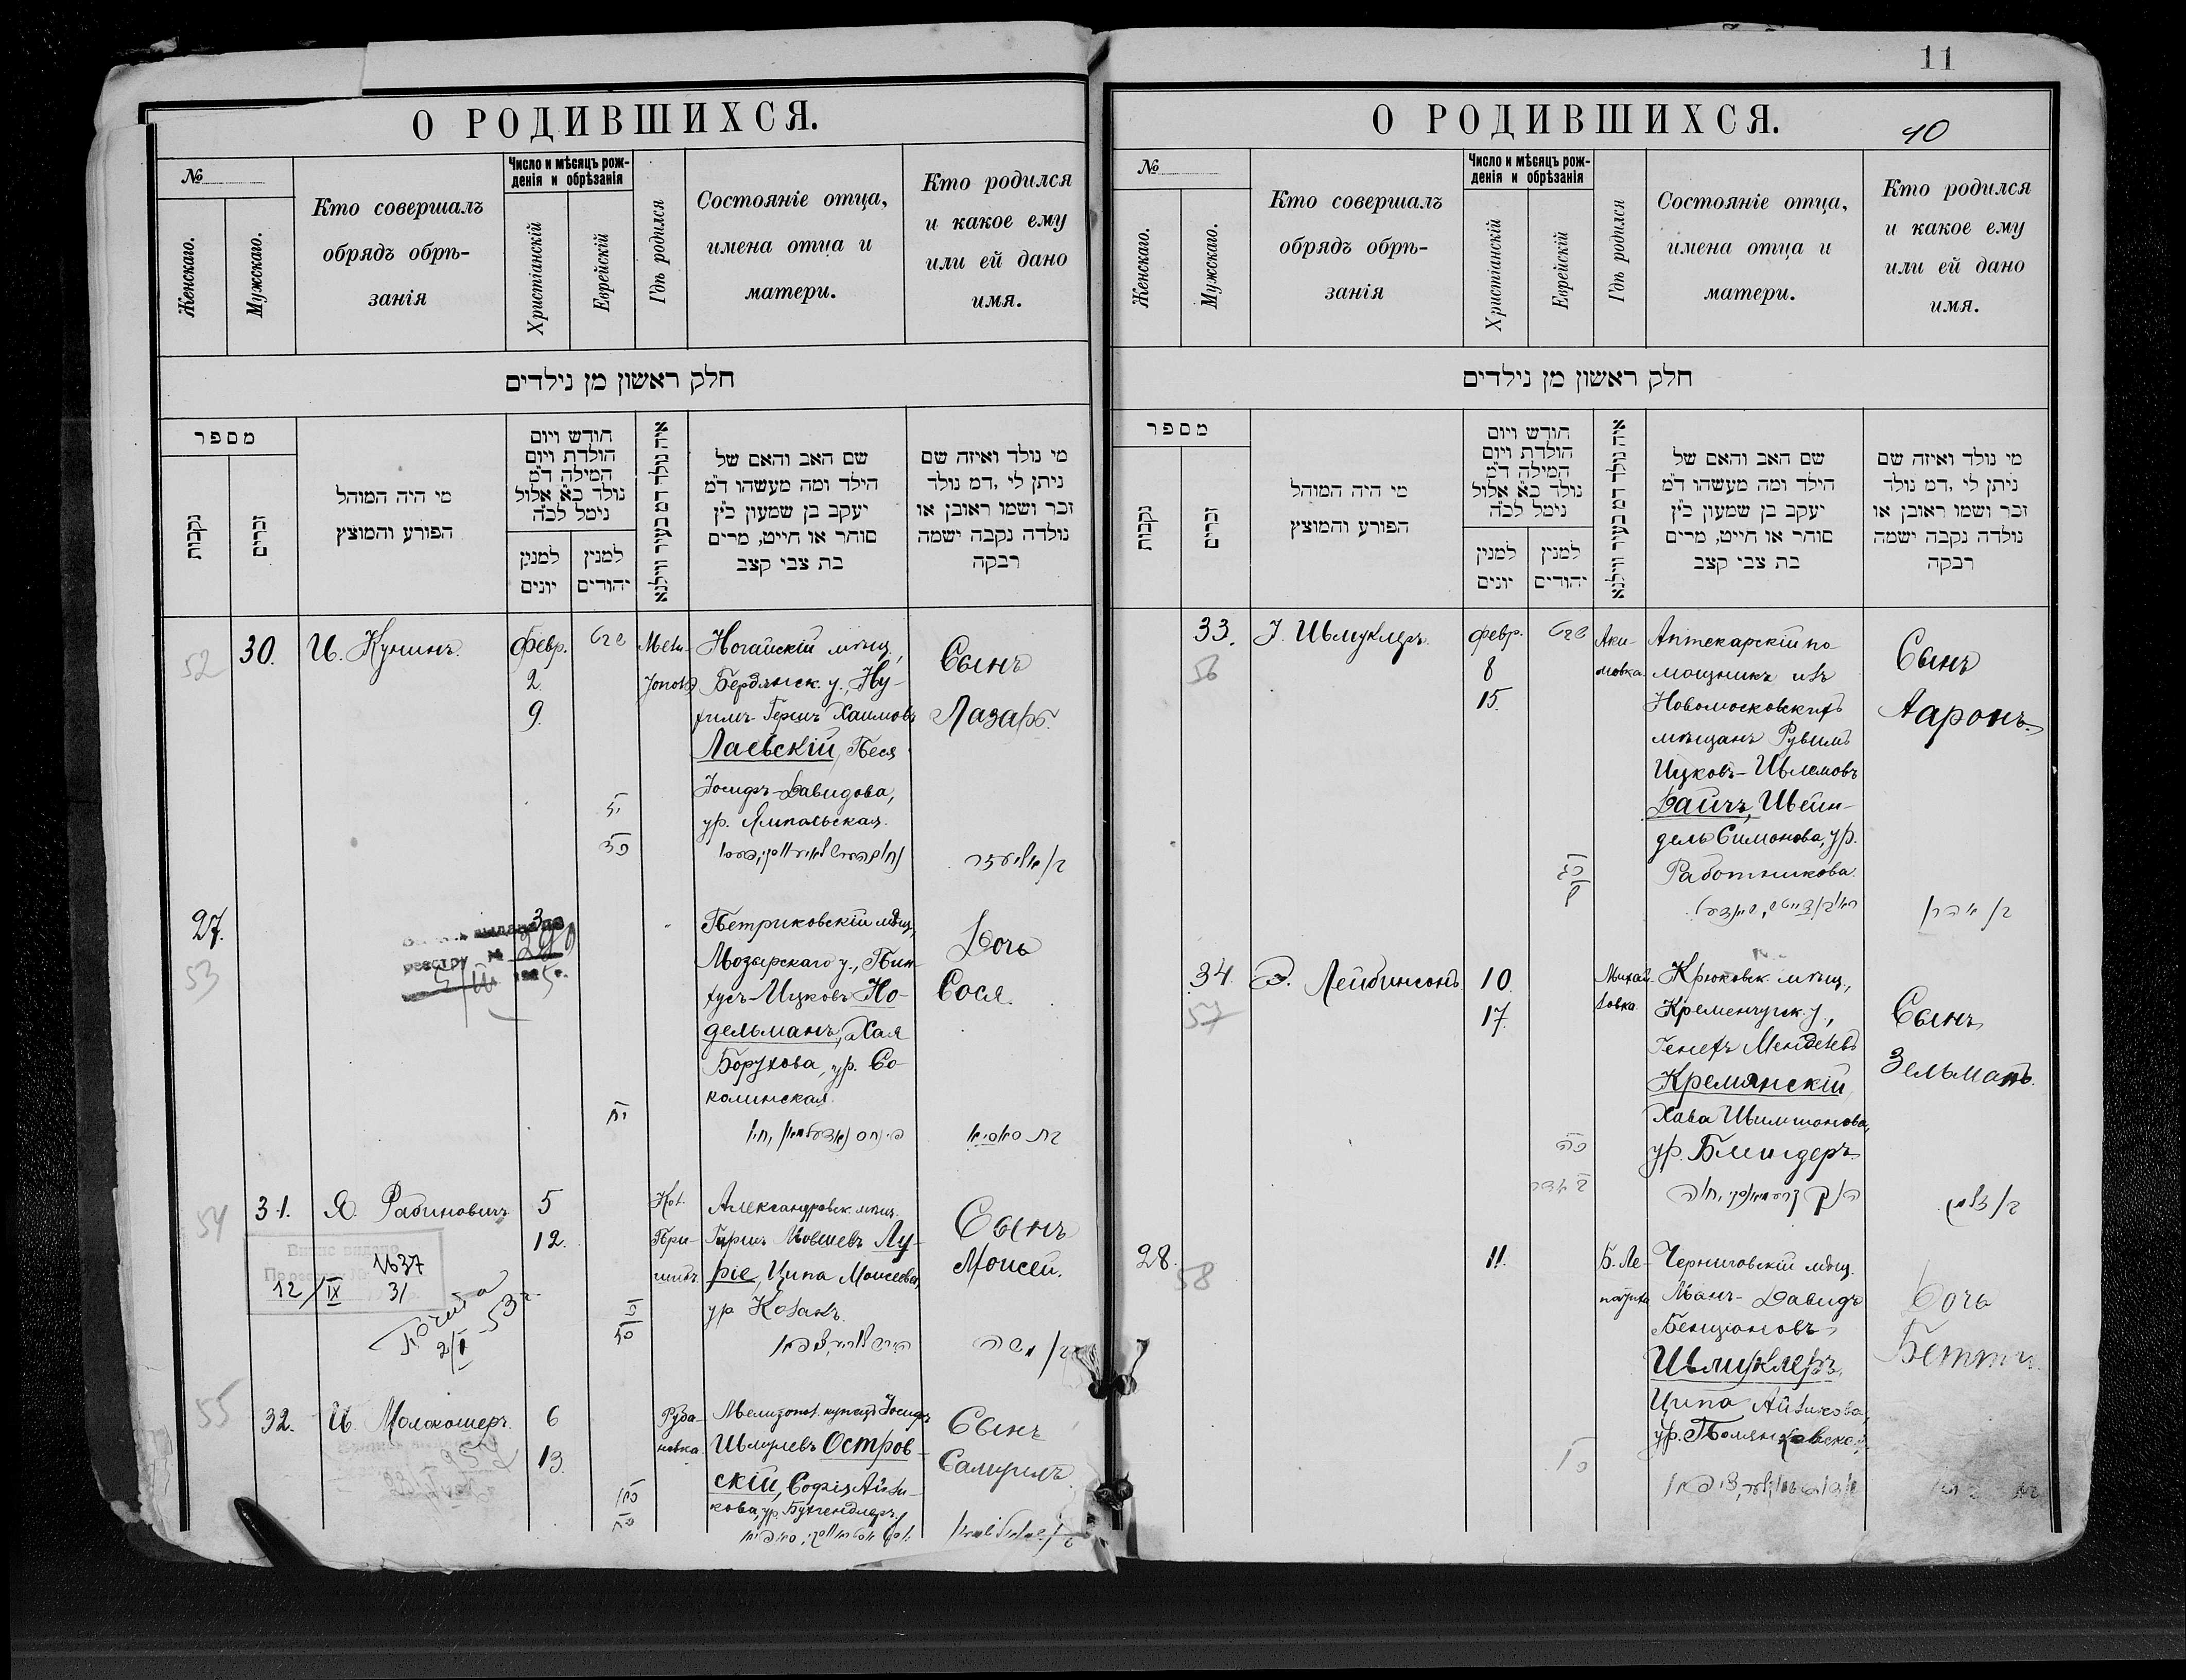 О РОДИВШИХСЯ.
№
Женскаго.
Мужскаго.
Кто совершалъ
обрядъ обрѣ-
занія
Число и мѣсяцъ рож-
денія и обрѣзанія
Христіанскій
Еврейскій
Гдѣ родился
Состояніе отца,
имена отца и
матери.
Кто родился
и какое ему
или ей дано
имя.
חלק ראשון מן נילדים
מספר
נקבות
זכרים
מי היה המוהל
הפורע והמוצץ
חודש ויום
הולדת ויום
המילה ד״מ
נולד כ״א אלול
נימל לכ״ה
למנין
יונים
למנין
יהודים
איה נולד דמ בעיר ווילנא
שם האב והאם של
הילד ומה מעשהו ד״מ
יעקב בן שמעון כ״ץ
סוחר או חייט, מרים
בת צבי קצב
מי נולד ואיזה שם
ניתן לי, דמ נולד
זכר ושמו ראובן או
נולדה נקבה ישמה
רבקה
52
30.
И. Кунинъ.
Февр.
2.
9.
Ногайскій мѣщ.,
Бердянск. у., Ну-
химъ-Гершъ Хаимовъ
Лаевскій, Песя
Іосифъ-Давидова,
ур. Ямпольская.
Сынъ
Лазарь.
27.
53
3
реестру №
Петриковскій мѣщ.,
Мозырскаго у., Пин-
хусъ-Ицковъ Но-
дельманъ, Хая
Борухова, ур. Со-
колинская.
Дочь
Сося.
54
31.
Я. Рабиновичъ
5
12.
1637
12/IX 31
Александровск. мѣщ.
Гиршъ Мовшевъ Лу-
ріе, Ципа Моисеева,
ур. Козакъ.
Сынъ
Моисей.
55
32.
И. Молокошеръ
6
13.
Руба-
новка.
Мелитопол. купецъ Іосифъ
Шмулевъ Остров-
скій, Софія Айзи-
кова, ур. Бухгендлеръ
Сынъ
Самуилъ
11
40
О РОДИВШИХСЯ.
№
Женскаго.
Мужскаго.
Кто совершалъ
обрядъ обрѣ-
занія
Число и мѣсяцъ рож-
денія и обрѣзанія
Христіанскій
Еврейскій
Гдѣ родился
Состояніе отца,
имена отца и
матери.
Кто родился
и какое ему
или ей дано
имя.
חלק ראשון מן נילדים
מספר
נקבות
זכרים
מי היה המוהל
הפורע והמוצץ
חודש ויום
הולדת ויום
המילה ד״מ
נולד כ״א אלול
נימל לכ״ה
למנין
יונים
למנין
יהודים
איה נולד דמ בעיר ווילנא
שם האב והאם של
הילד ומה מעשהו ד״מ
יעקב בן שמעון כ״ץ
סוחר או חייט, מרים
בת צבי קצב
מי נולד ואיזה שם
ניתן לי, דמ נולד
זכר ושמו ראובן או
נולדה נקבה ישמה
רבקה
33.
56
І. Шмуклеръ.
Февр.
8
15.
Аки-
мовка.
Аптекарскій по-
мощникъ изъ
Новомосковскихъ
мѣщанъ Рувимъ
Ицковъ-Шлемовъ
Дайчъ, Шейн-
дель Симонова, ур.
Работникова.
Сынъ
Ааронъ.
34.
57
Э. Лейбинсонъ
10.
17.
Михай-
ловка.
Крюковск. мѣщ.,
Кременчугск. у.,
Генехъ Менделевъ
Кремянскій,
Хава Шимшонова,
ур. Блиндеръ
Сынъ
Зельманъ.
28.
58
11.
Б. Ле-
патиха
Черниговскій мѣщ.
Манъ-Давидъ
Бенціоновъ
Шмуклеръ,
Ципа Айзикова,
Дочь
Бетти.